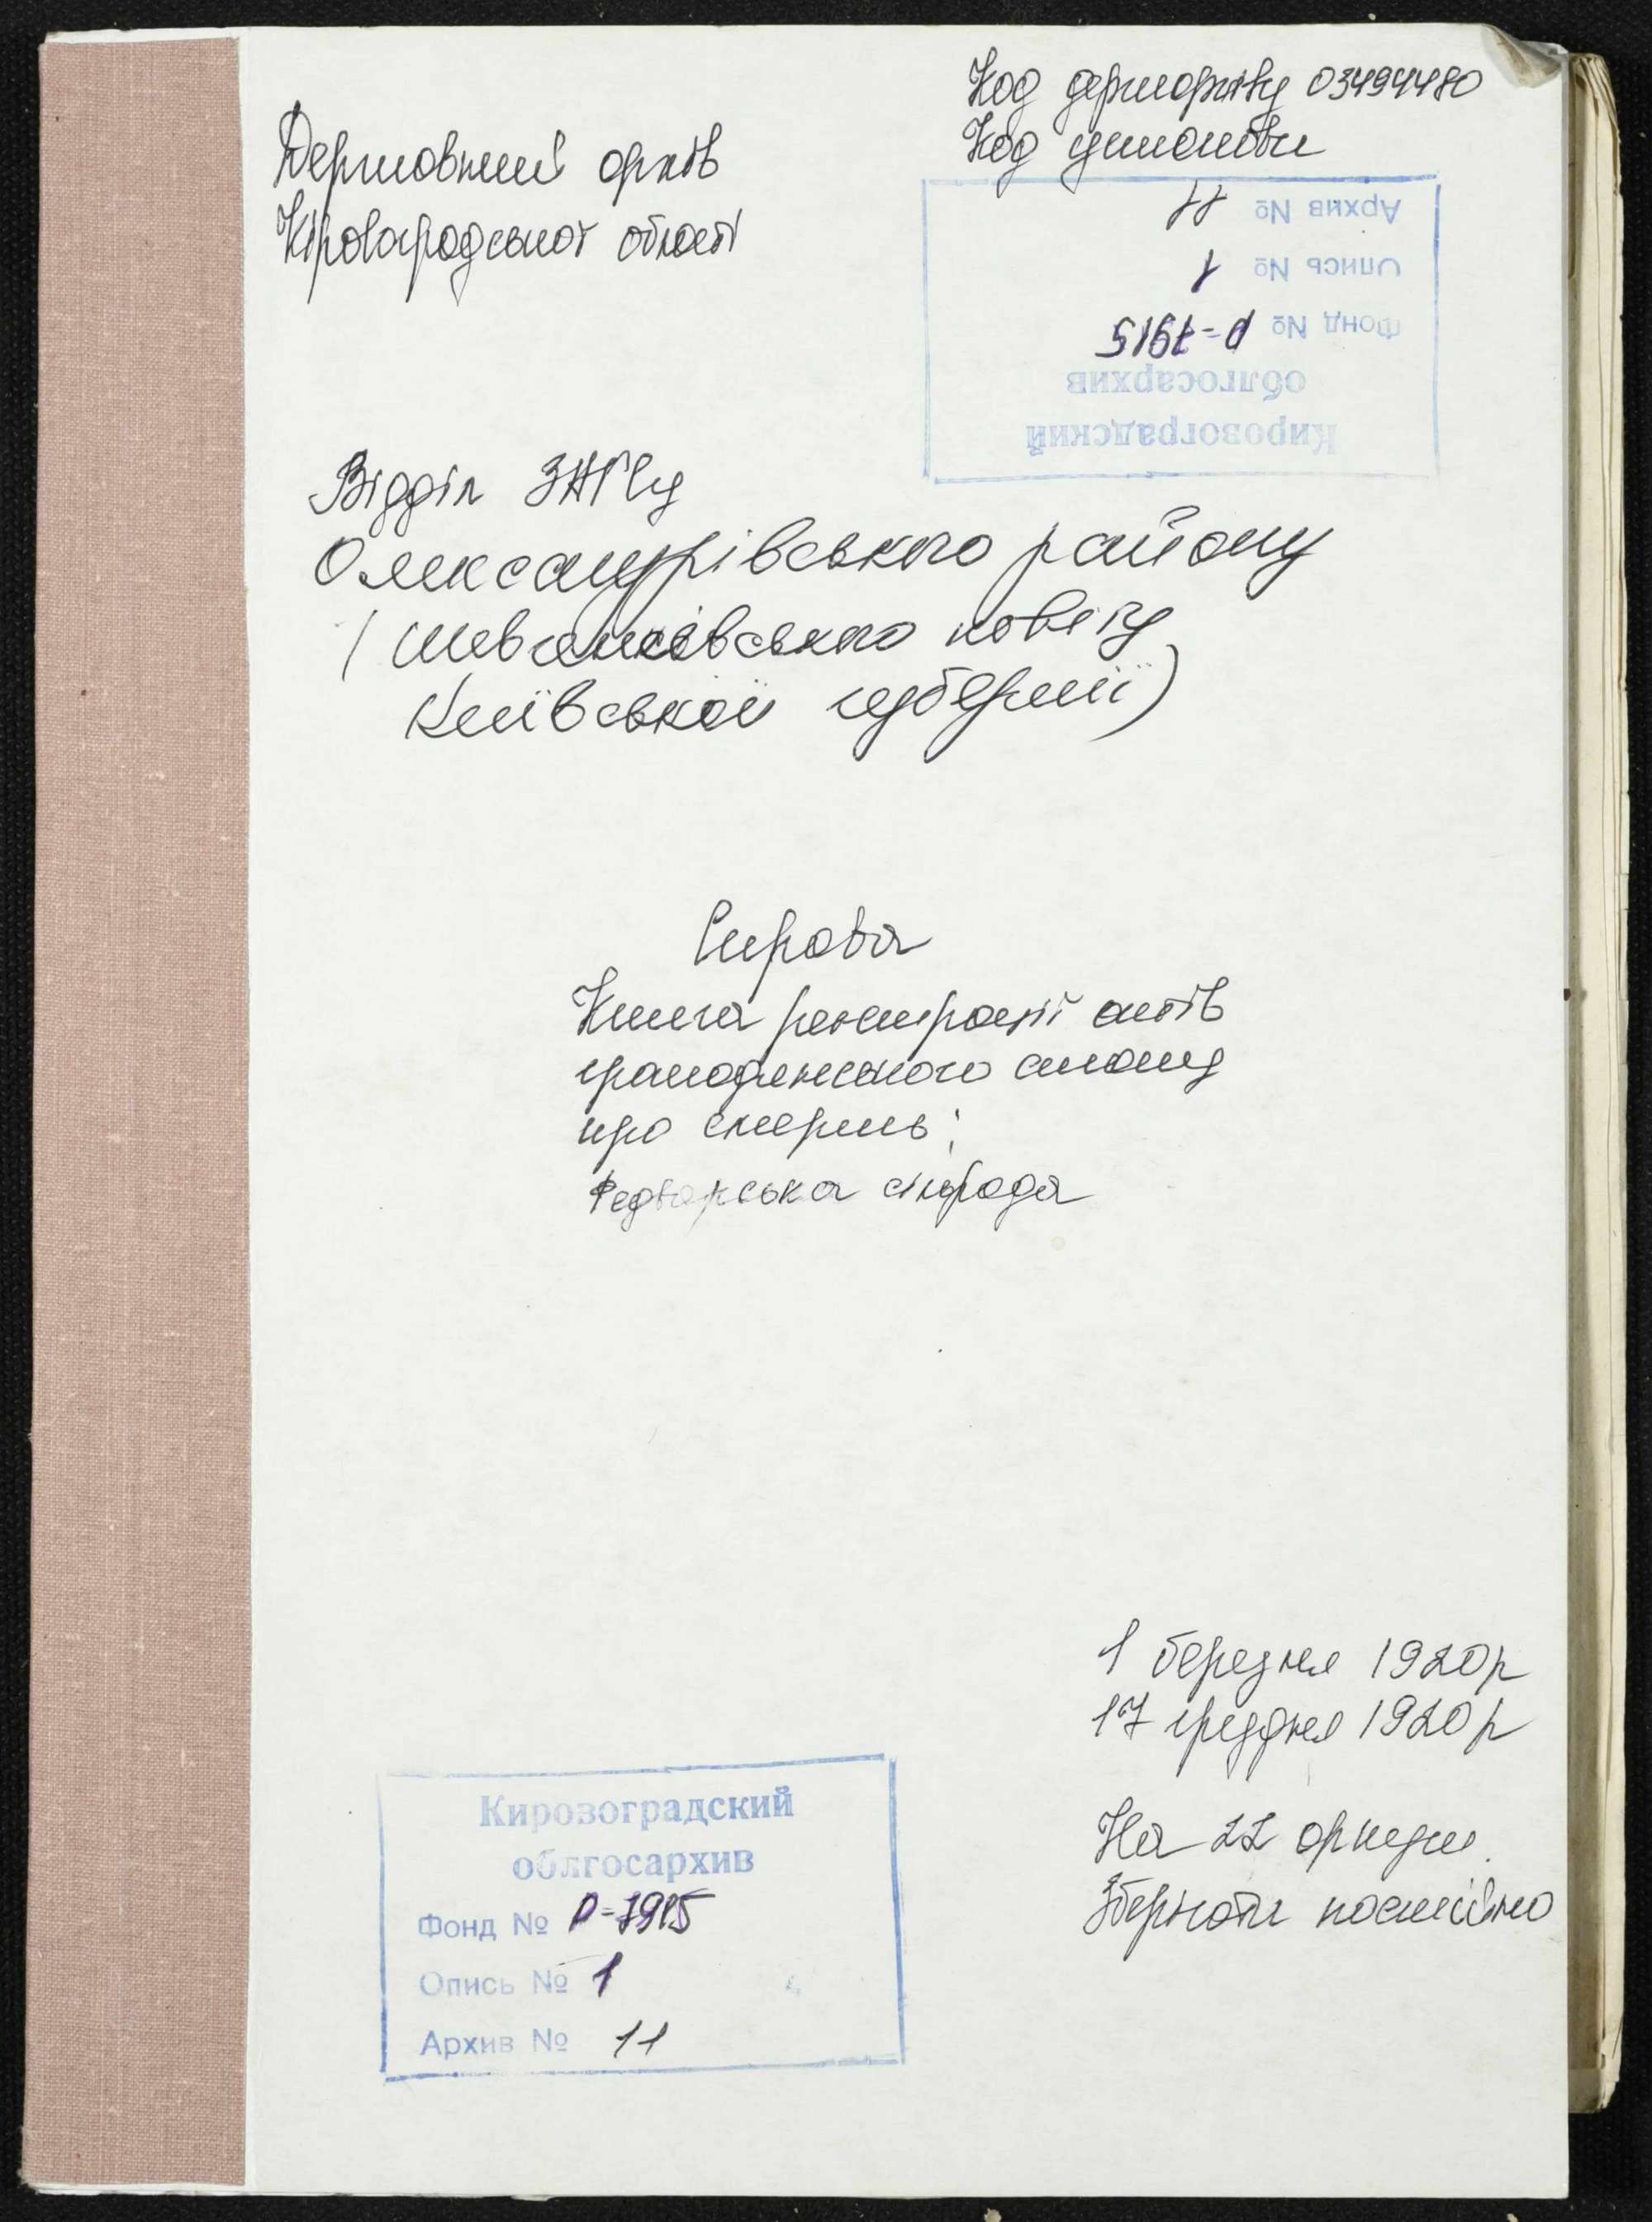 Код держархіву 03494480
Код установи
Державний архів
Кіровоградської області
Архив № 11
Опись № 1
Фонд № Р-7915
облгосархив
Кировоградский
Відділ ЗАГСу
Олександрівського району
(
повіту
Київської губернії)
Справа
Книга реєстрації актів
громадянського стану
про смерть;
Федварська сільрада
1 березня 1920 р
17 грудня 1920 р
На 22 аркушах
Зберігати постійно
Кировоградский
облгосархив
Фонд № Р-7915
Опись № 1
Архив № 11